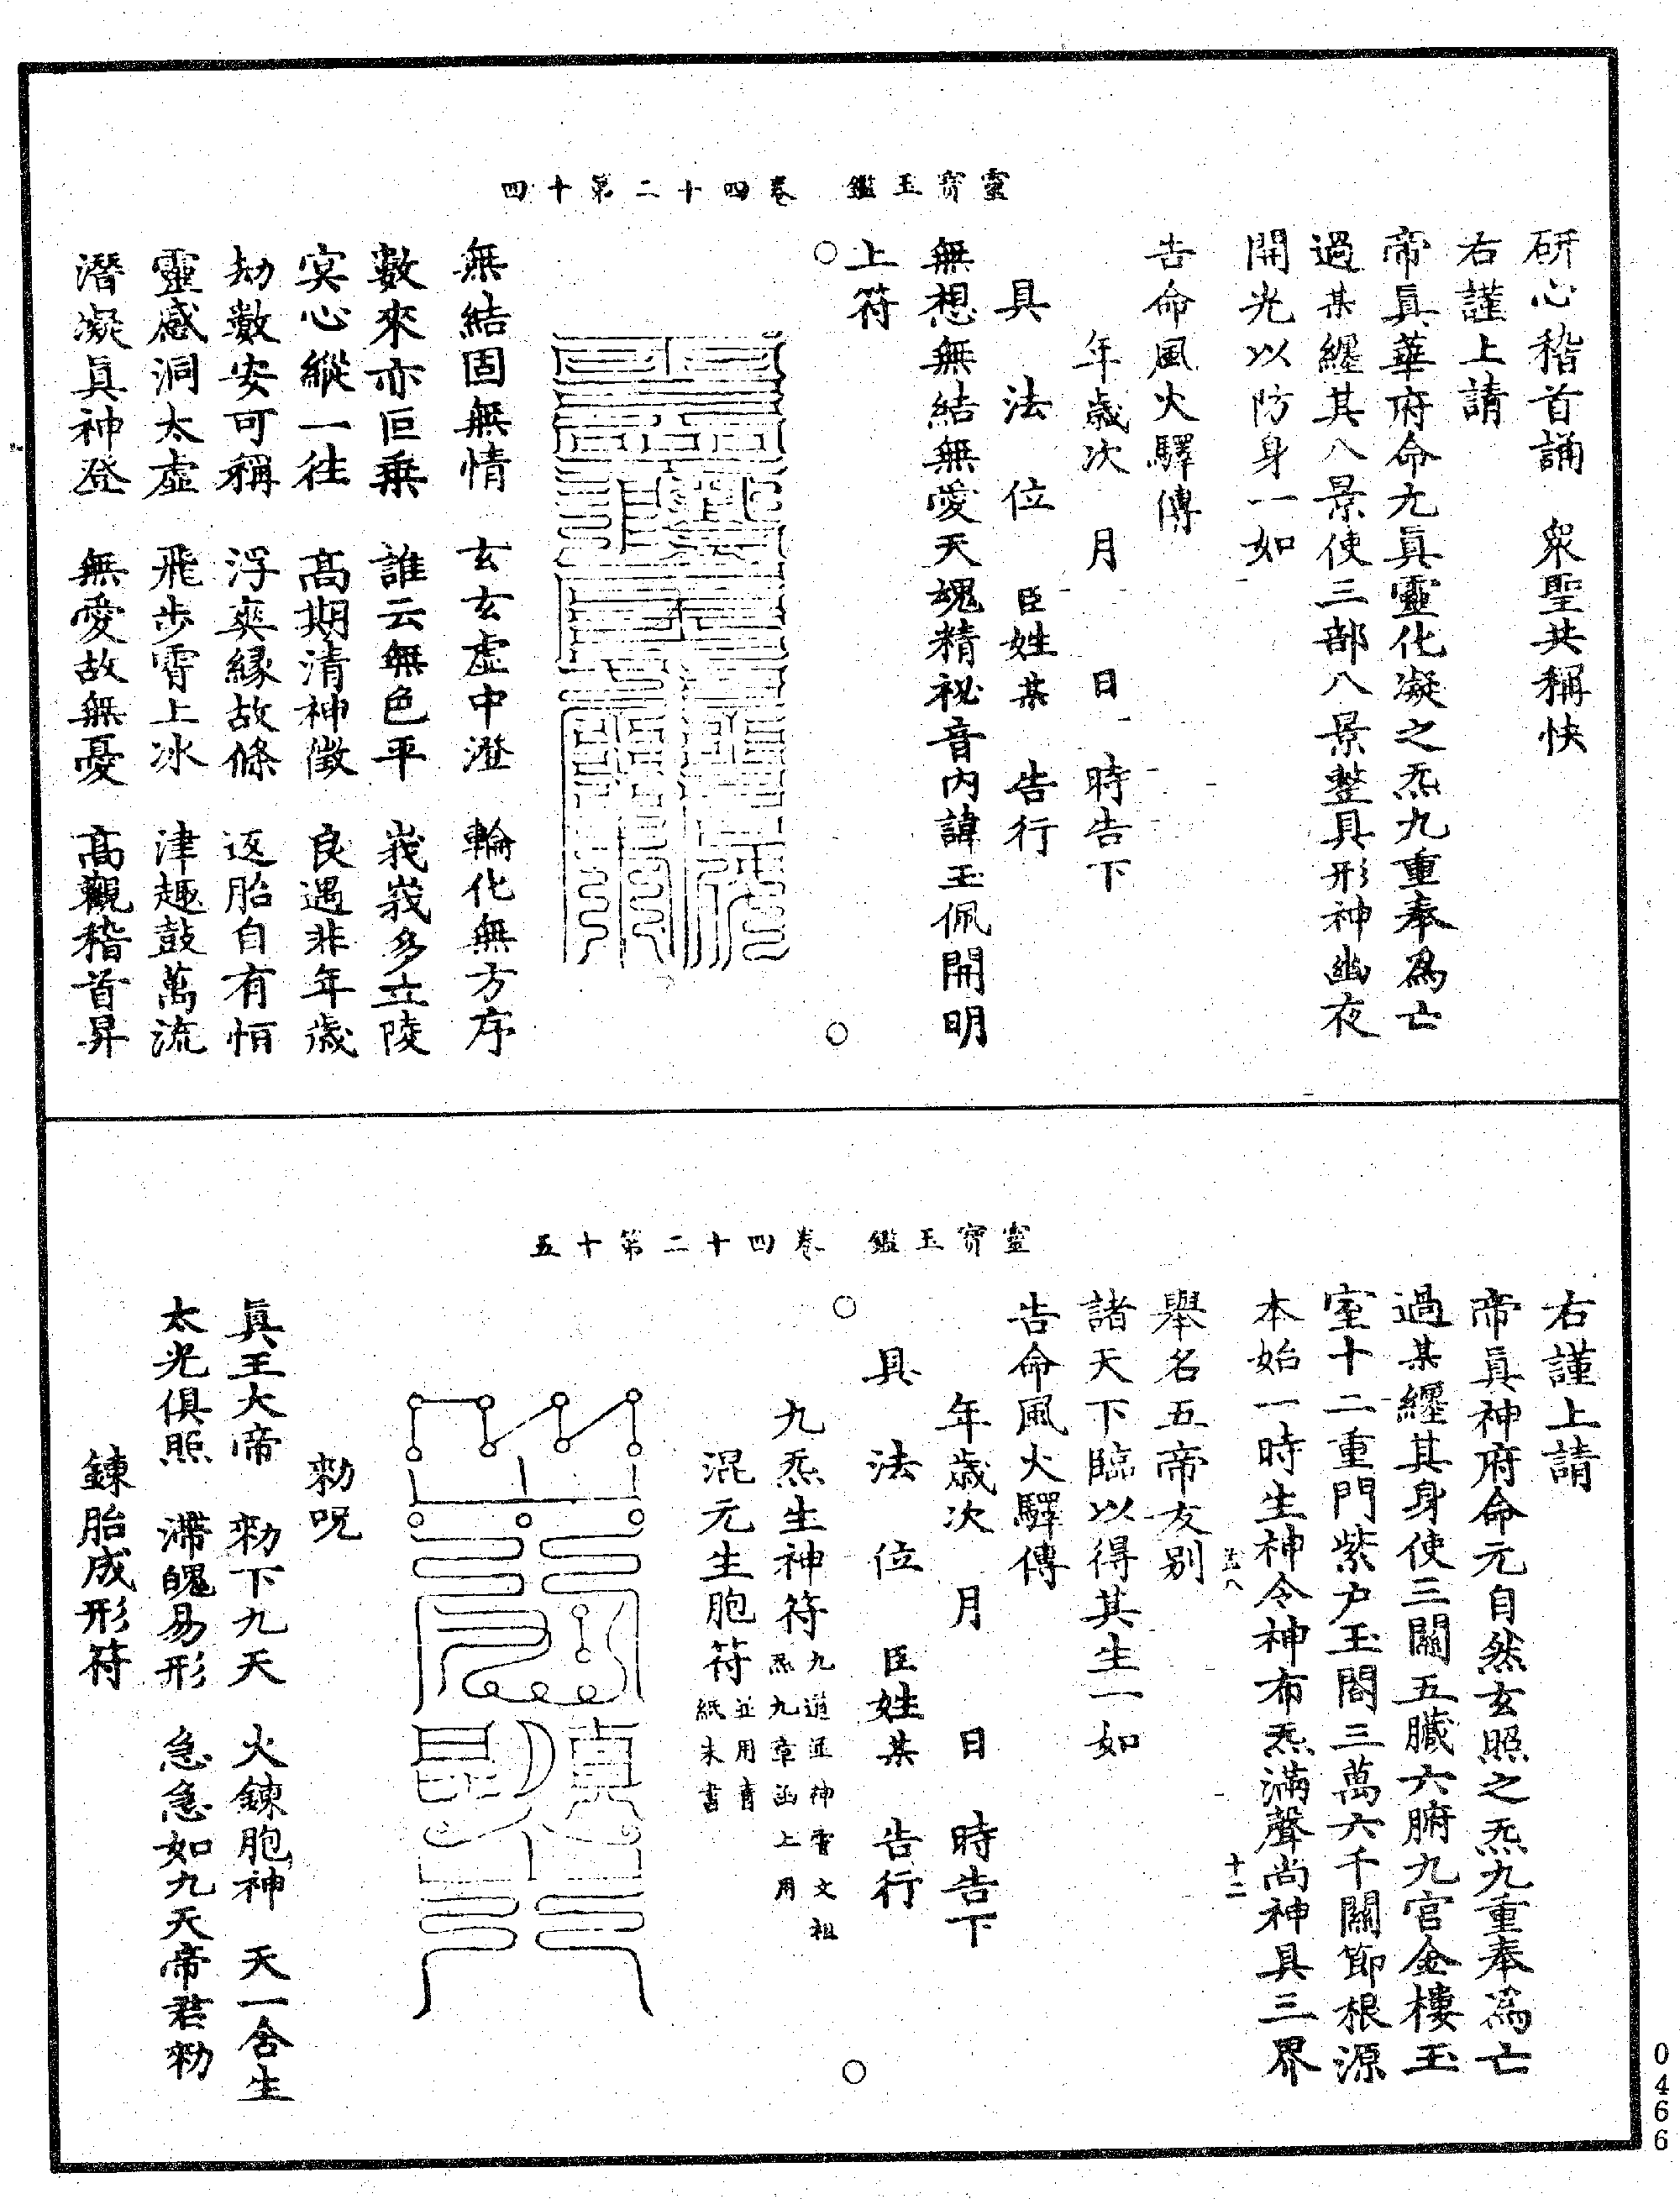 靈寶玉鑑　卷四十二第十四
研心稽首誦　衆聖共稱快
右謹上請
帝眞華府命九眞靈化凝之炁九重奉爲亡
過某纒其八景使三部八景整具形神幽夜
開光以防身一如
告命風火驛傳
年歲次　月　日　時告下
具　法　位　臣姓某　告行
無想無結無愛天魂精祕音內諱玉佩開明
上符
無結固無情　玄玄虛中澄　輪化無方序
數來亦叵乗　誰云無色平　峩峩多丘陵
㝠心縱一往　高期清神徵　良遇非年歲
劫數安可稱　浮爽緣故條　返胎自有恒
靈感洞太虛　飛步霄上冰　津趣鼓萬流
潛凝眞神登　無愛故無憂　高觀稽首昇
靈寶玉鑑　卷四十二第十五
右謹上請
帝眞神府命元自然玄照之炁九重奉爲亡
過某纒其身使三關五臟六腑九宮金樓玉
室十二重門紫户玉閤三萬六千關節根源
本始一時生神令神布炁滿聲尚神具三界
十二
舉名五帝友別
諸天下臨以得其生一如
告命風火驛傳
年歲次　月　日　時告下
具　法　位　臣姓某　告行
九炁生神符九道逐神霄文祖炁九章函上用
混元生胞符並用青紙朱書
勑呪
眞王大帝　勑下九天　火鍊胞神　天一含生
太光俱照　滯魄易形　急急如九天帝君勑
鍊胎成形符
0466